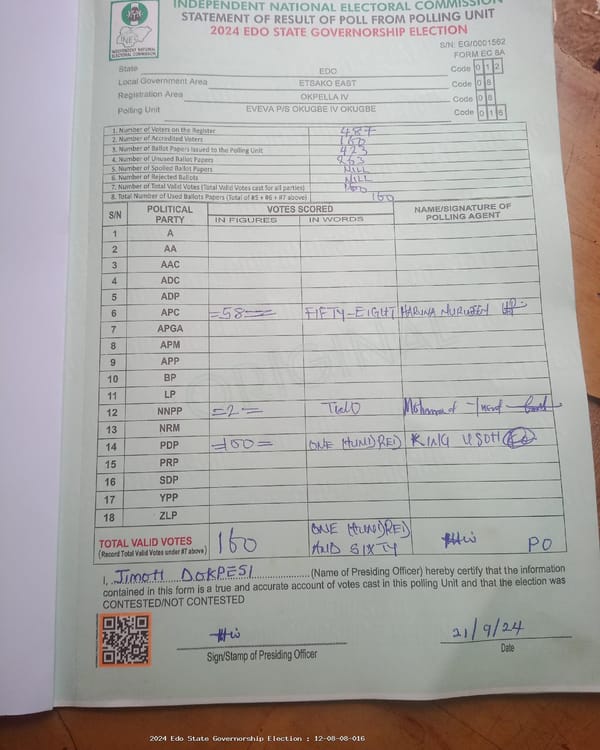 INDEPENDENT NATIONAL ELECTORAL COMMISSION
STATEMENT OF RESULT OF POLL FROM POLLING UNIT
2024 EDO STATE GOVERNORSHIP ELECTION
INDEPENDENT NATIONAL
ELECTORAL COMMISSION
S/N: EG/0001562
FORM EC 8A
State EDO Code 0 1 2
Local Government Area ETSAKO EAST Code 0 8
Registration Area OKPELLA IV Code 0 8
Polling Unit EVEVA P/S OKUGBE IV OKUGBE Code 0 1 6
1. Number of Voters on the Register 487
2. Number of Accredited Voters 160
3. Number of Ballot Papers Issued to the Polling Unit 423
4. Number of Unused Ballot Papers 263
5. Number of Spoiled Ballot Papers NILL
6. Number of Rejected Ballots NILL
7. Number of Total Valid Votes (Total Valid Votes cast for all parties) 160
8. Total Number of Used Ballots Papers (Total of #5 + #6 + #7 above) 160
S/N POLITICAL PARTY VOTES SCORED NAME/SIGNATURE OF POLLING AGENT
IN FIGURES IN WORDS
1 A
2 AA
3 AAC
4 ADC
5 ADP
6 APC =58= FIFTY-EIGHT HARUNA NURUDEEN
7 APGA
8 APM
9 APP
10 BP
11 LP
12 NNPP =2= TWO Mohammed
13 NRM
14 PDP =100= ONE HUNDRED KING USOH
15 PRP
16 SDP
17 YPP
18 ZLP
TOTAL VALID VOTES 160 ONE HUNDRED PO
(Record Total Valid Votes under #7 above) AND SIXTY
I, JIMOH DOKPESI (Name of Presiding Officer) hereby certify that the information
contained in this form is a true and accurate account of votes cast in this polling Unit and that the election was
CONTESTED/NOT CONTESTED
21/9/24
Sign/Stamp of Presiding Officer Date
2024 Edo State Governorship Election : 12-08-08-016